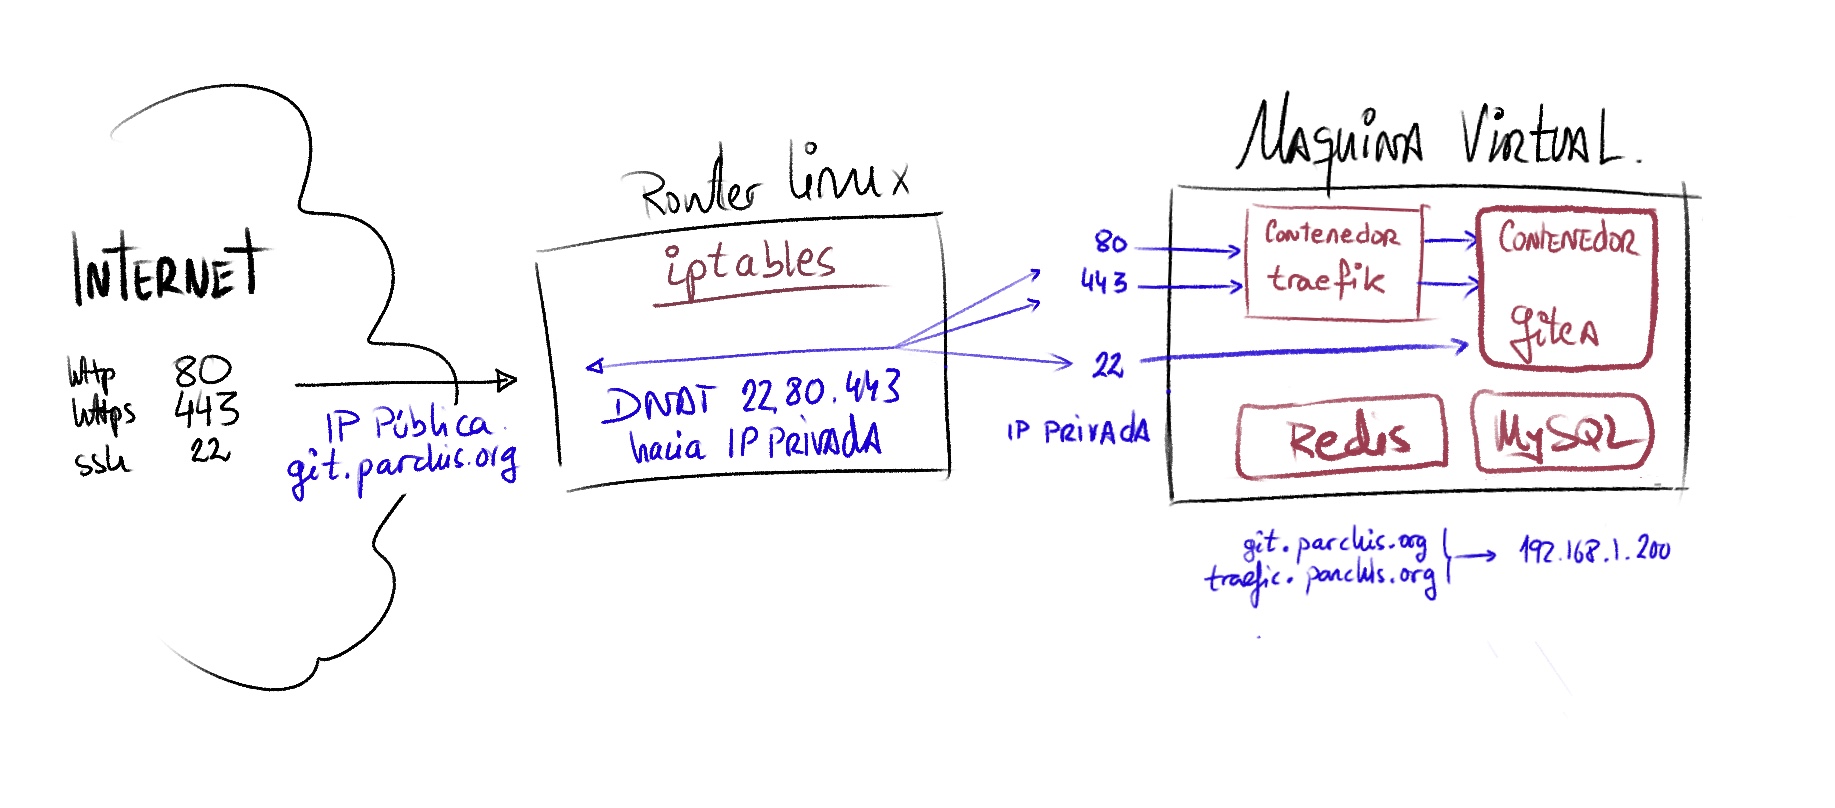 INTERNET
http 80
https 443
ssh 22
IP Pública.
git.parchis.org
Router linux
iptables
DNAT 22,80.443
hacia IP PRIVADA
80
443
22
IP PRIVADA
MAQUINA VIRTUAL.
Contenedor
traefik
CONTENEDOR
gitea
Redis
MySQL
git.parchis.org
traefic.parchis.org
192.168.1.200